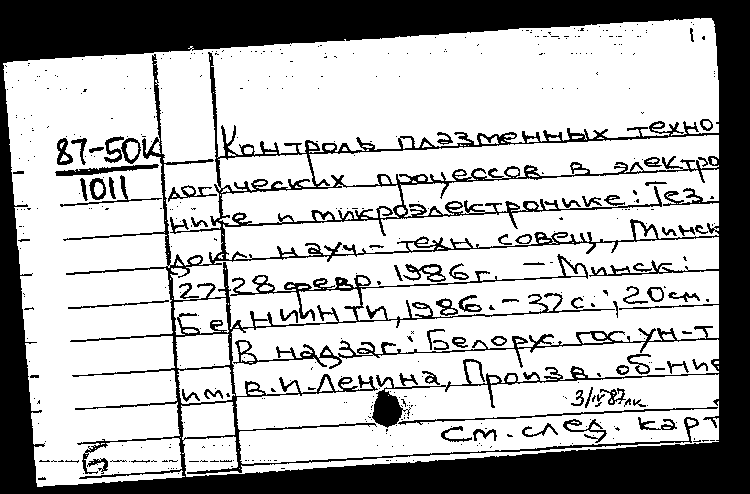 1.
87-50К
1011
Контроль плазменных техно-
логических процессов в электро
нике и микроэлектронике: Тез.
докл. науч.-техн. совещ., Минск
27-28 февр. 1986г. - Минск:
БелНИИНТИ, 1986. - 37с.; 20см.
В надзаг.: Белорус. гос. ун-т
им. В.И.Ленина, Произв. об-ние
3/IV87
см. след. карт
Б